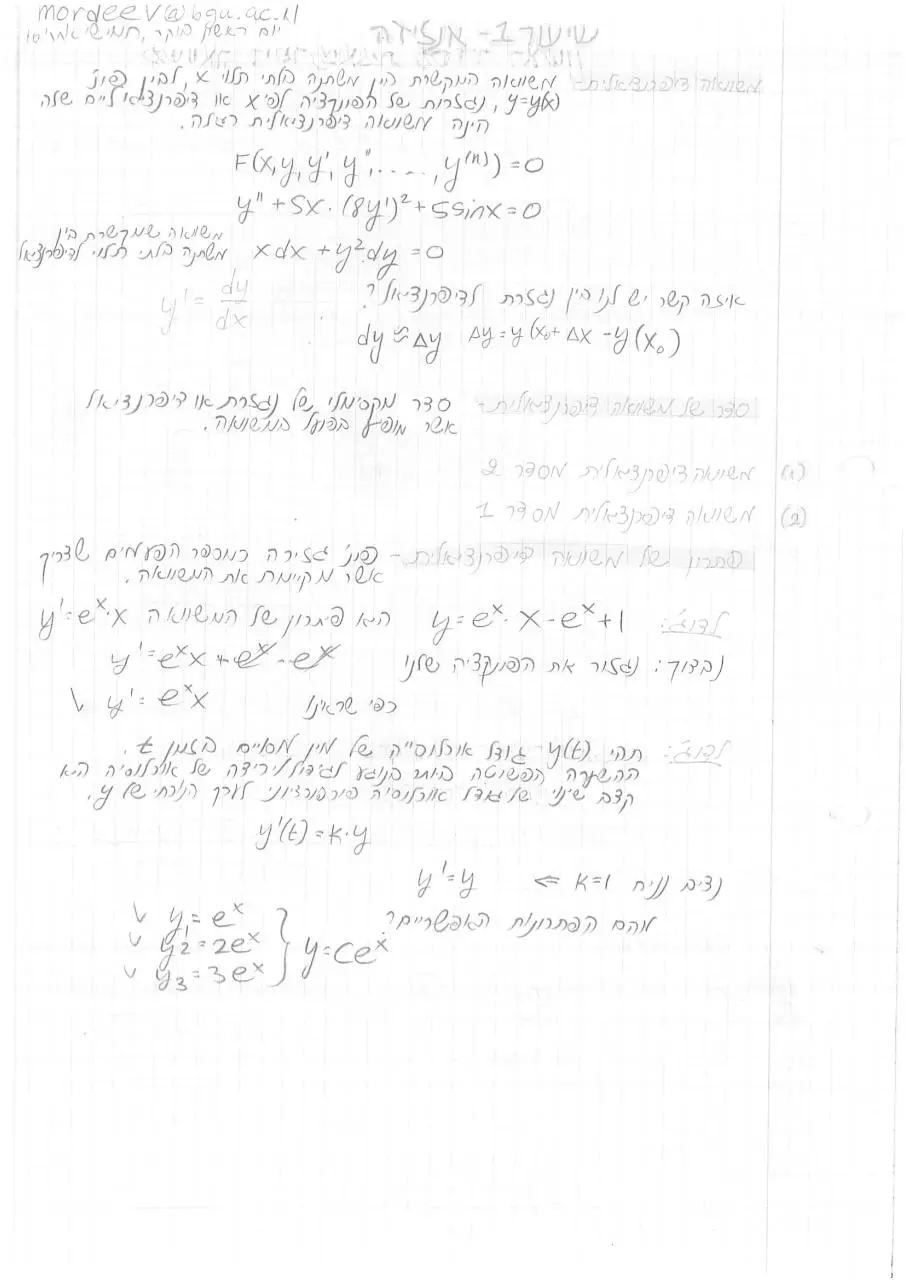 mordeev@bgu.ac.il
יום ראשון בוקר, חמישי
שיעור 1 -
משוואה דיפרנציאלית - משוואה המקשרת בין משתנה בלתי תלוי x, לבין פונ'
y=y(x), נגזרות של הפונקציה לפי x או דיפרנציאליים שלה
הינה משוואה דיפרנציאלית רגילה.
F(x,y,y',y'',....,y^(n))=0
y''+5x·(8y')²+5sinx=0
משוואה שמקשרת בין
משתנה בלתי תלוי לדיפרנציאל xdx+y²dy=0
איזה קשר יש לנו בין נגזרת לדיפרנציאל? y'=dy/dx
dy≈Δy Δy=y(x₀+Δx-y(x₀)
סדר של משוואה דיפרנציאלית - סדר מקסימלי של נגזרת או דיפרנציאל
אשר מופיע בפועל במשוואה.
(1) משוואה דיפרנציאלית מסדר 2
(2) משוואה דיפרנציאלית מסדר 1
פתרון של משוואה דיפרנציאלית - פונ' גזירה כמספר הפעמים שצריך
אשר מקיימת את המשוואה.
לדוג': y=eˣ·x-eˣ+1 היא פיתרון של המשוואה y'=eˣ·x
נבדוק: נגזור את הפונקציה שלנו y'=eˣx+eˣ-eˣ
כפי שראינו y'=eˣx ✓
לדוג': תהי y(t) גודל אוכלוסייה של מין מסויים בזמן t.
ההשערה הפשוטה ביותר בנוגע לגידול/ירידה של אוכלוסיה היא
קצב שינוי של גודל אוכלוסיה פרופורציוני לערך הנוכחי של y.
y'(t)=k·y
נניח k=1 ⇐ y'=y
מהם הפתרונות האפשריים?
✓ y₁=eˣ
✓ y₂=2eˣ } y=Ceˣ
✓ y₃=3eˣ